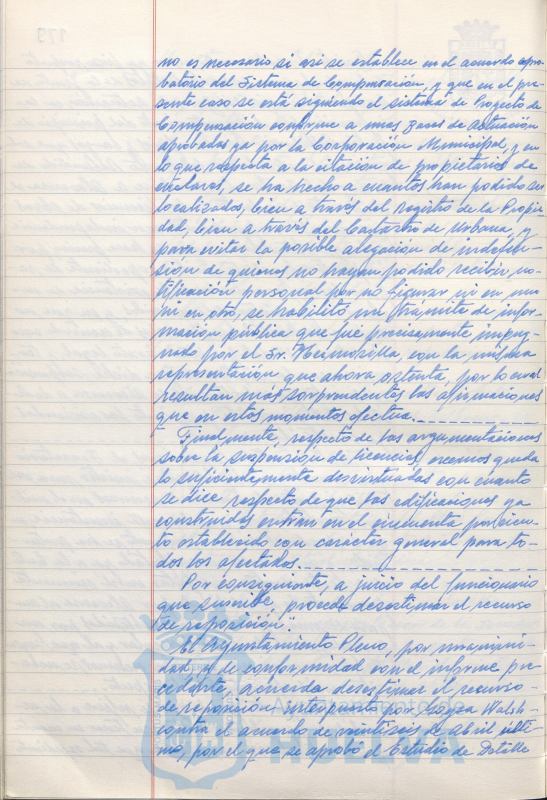 no es necesario si asi se establece en el acuerdo apro-
batorio del Sistema de Compensación, y que en el pre-
sente caso se está siguiendo el sistema de Proyecto de
Compensación conforme a unas Bases de Actuación
aprobadas ya por la Corporación Municipal, y en
lo que respecta a la citación de propietarios de
enclaves, se ha hecho a cuantos han podido ser
localizados, bien a través del Registro de la Propie-
dad, bien a través del Catastro de Urbana, y
para evitar la posible alegación de indefen-
sión de quienes no hayan podido recibir no-
tificación personal por no figurar ni en uno
ni en otro, se habilitó un tramite de infor-
mación pública que fué precisamente impug-
nado por el Sr. con la misma
representación que ahora ostenta, por lo cual
resultan más sorprendentes las afirmaciones
que en estos momentos efectua.
Finalmente, respecto de las argumentaciones
sobre la suspensión de licencias, creemos queda
lo suficientemente desvirtuadas con cuanto
se dice respecto de que las edificaciones ya
construidas entran en el cincuenta por cien-
to establecido con carácter general para to-
dos los afectados.
Por consiguiente, a juicio del funcionario
que suscribe, procede desestimar el recurso
de reposición".
El Ayuntamiento Pleno, por unanimi-
dad y de conformidad con el informe pre-
cedente, acuerda desestimar el recurso
de reposición interpuesto por Walsh
contra el acuerdo de veintiseis de Abril últi-
mo, por el que se aprobó el Estudio de Detalle
HUELVA